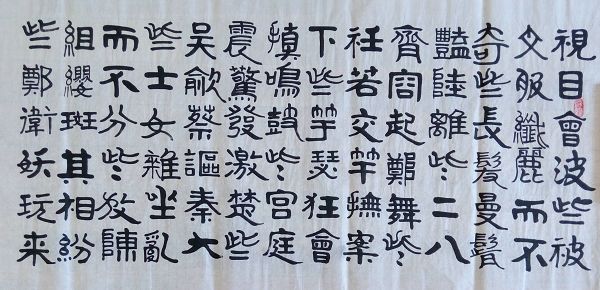 視目會波些被
文服纖麗而不
奇些長髮曼鬋
豔陸離些二八
齊容起鄭舞些
衽若交竿撫案
下些竽瑟狂會
搷鳴鼓些宮庭
震驚發激楚些
吳歈蔡謳秦大
些士女雜坐亂
而不分些放陳
組纓斑其相紛
些鄭衛妖玩来